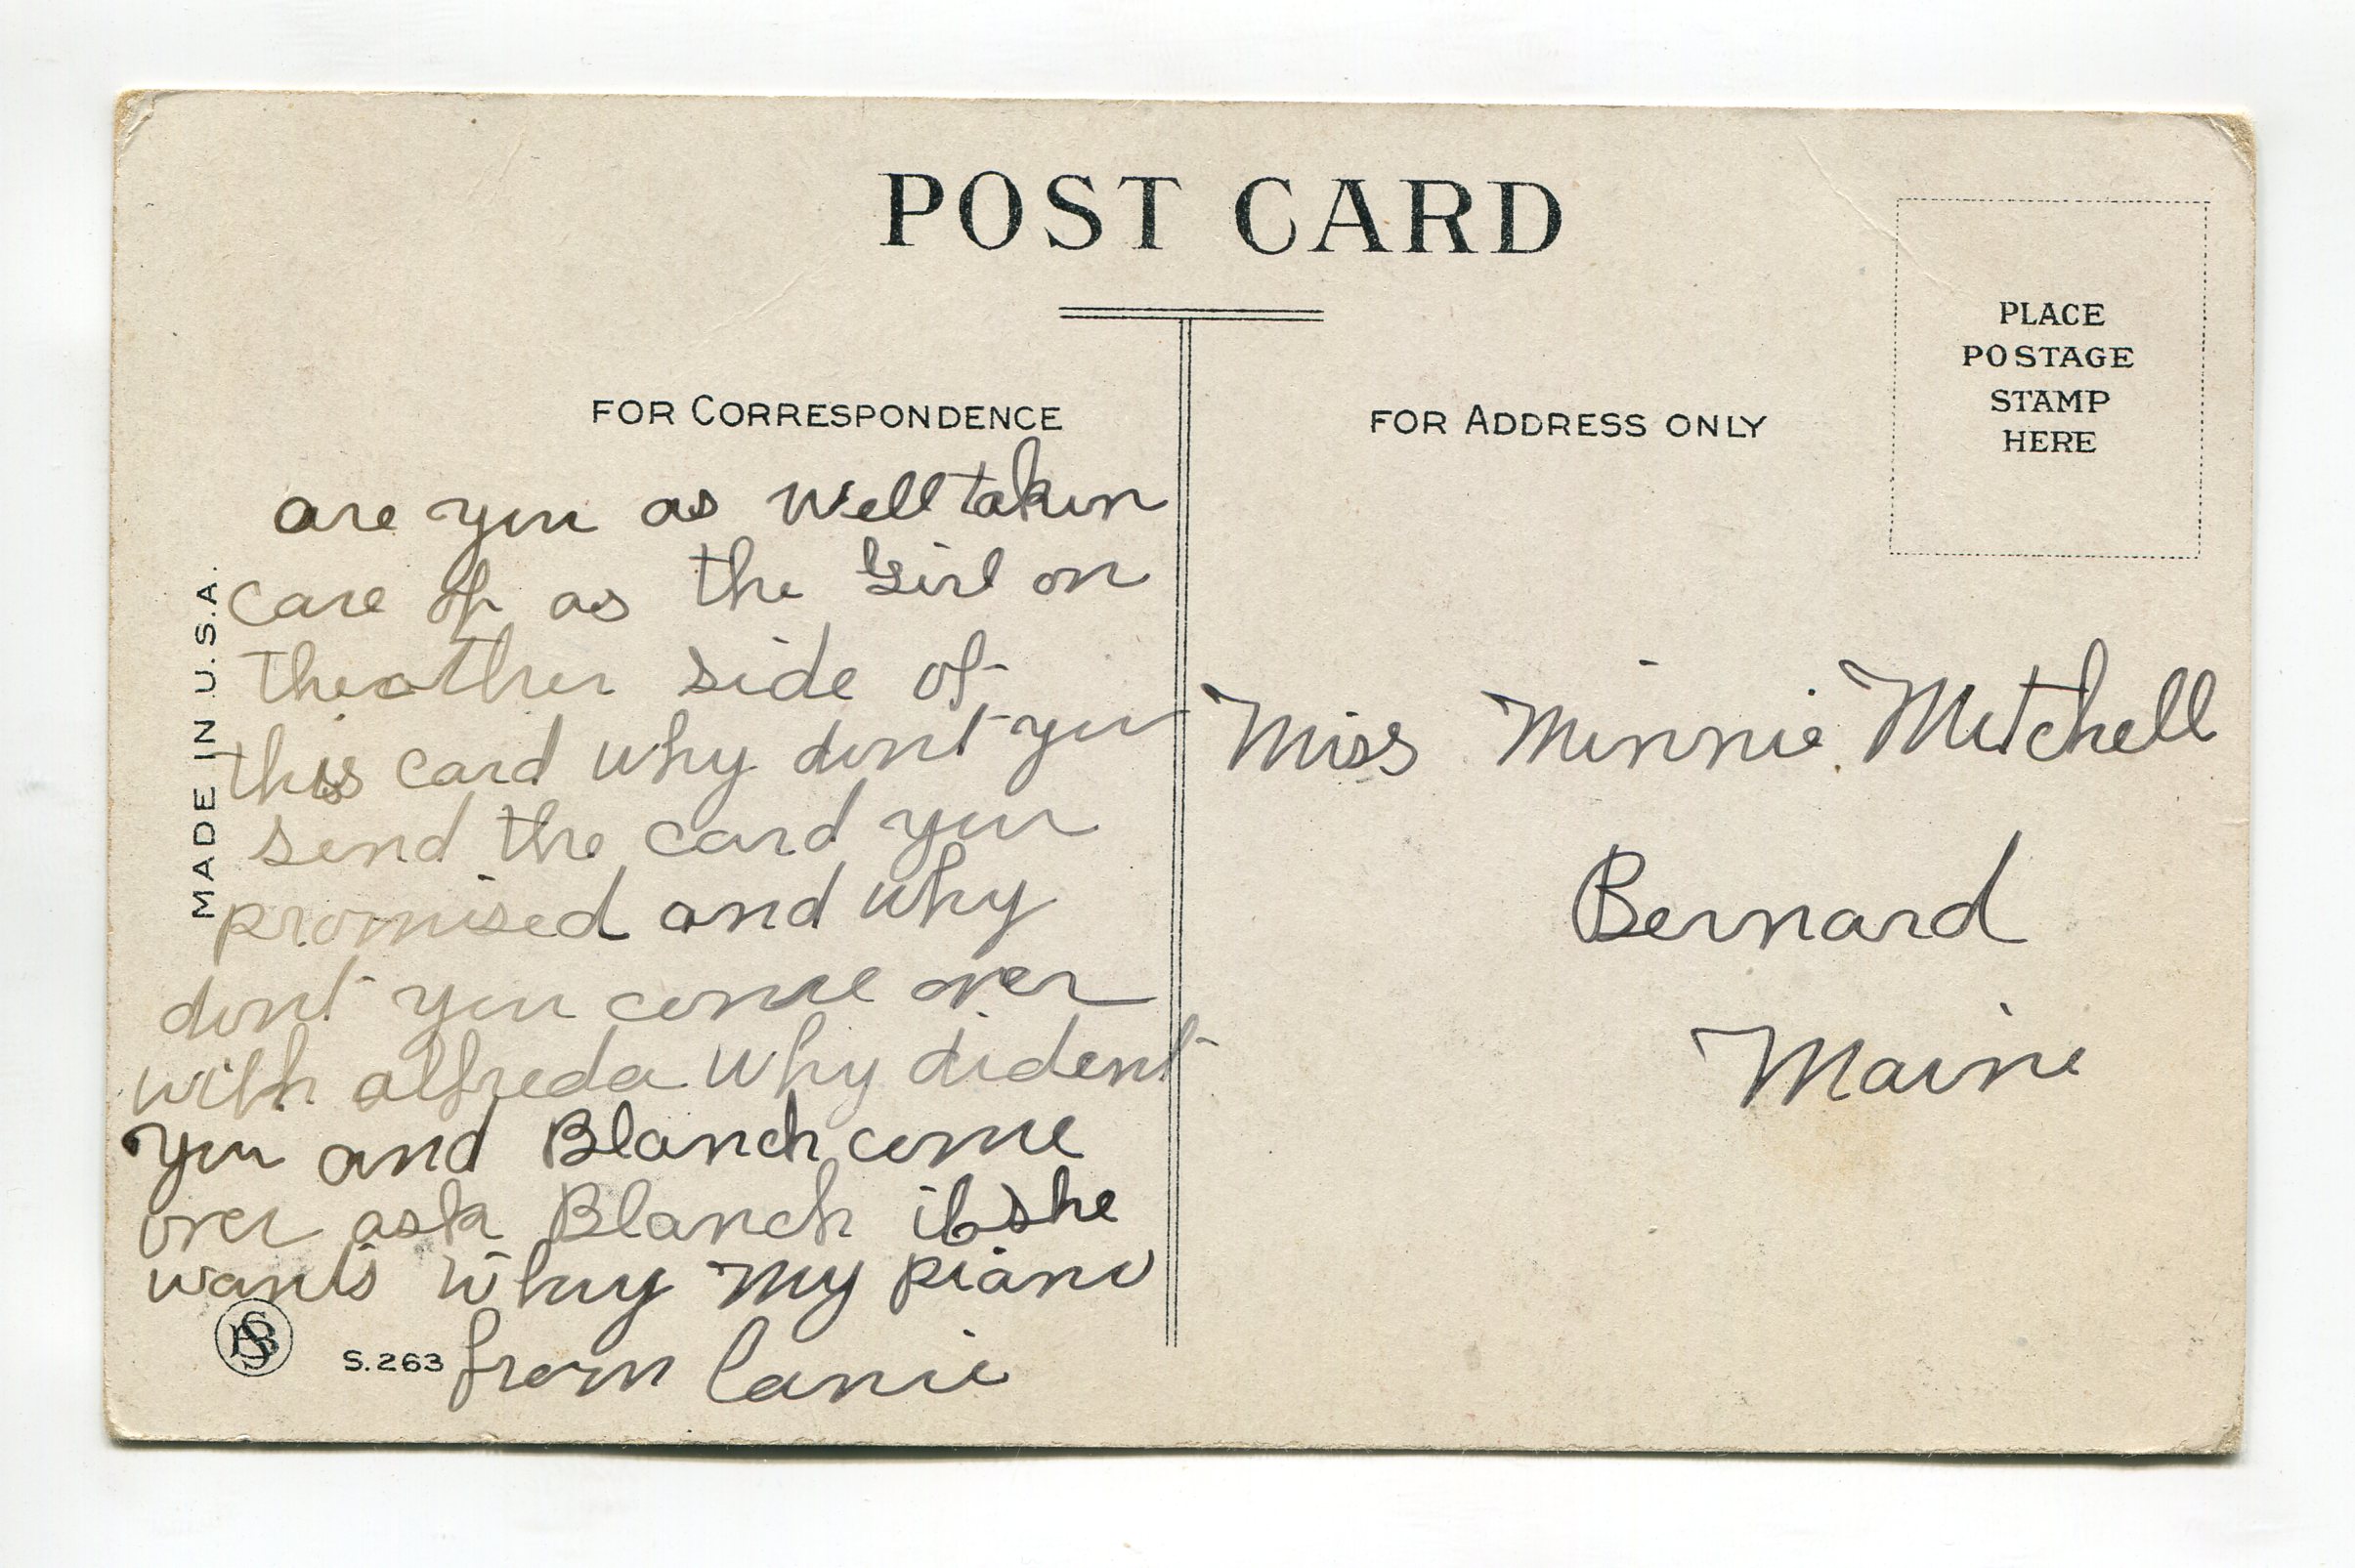 POST CARD
FOR CORRESPONDENCE
FOR ADDRESS ONLY
PLACE
POSTAGE
STAMP
HERE
MADE IN U.S.A.
are you as well taken
care of as the Girl on
the other side of
this card why dont you
send the card you
promised and why
dont you come over
with alfreda why dident
you and Blanch come
over ask Blanch if she
wants my piano
from
S.263
Miss Minnie Mitchell
Bernard
Maine